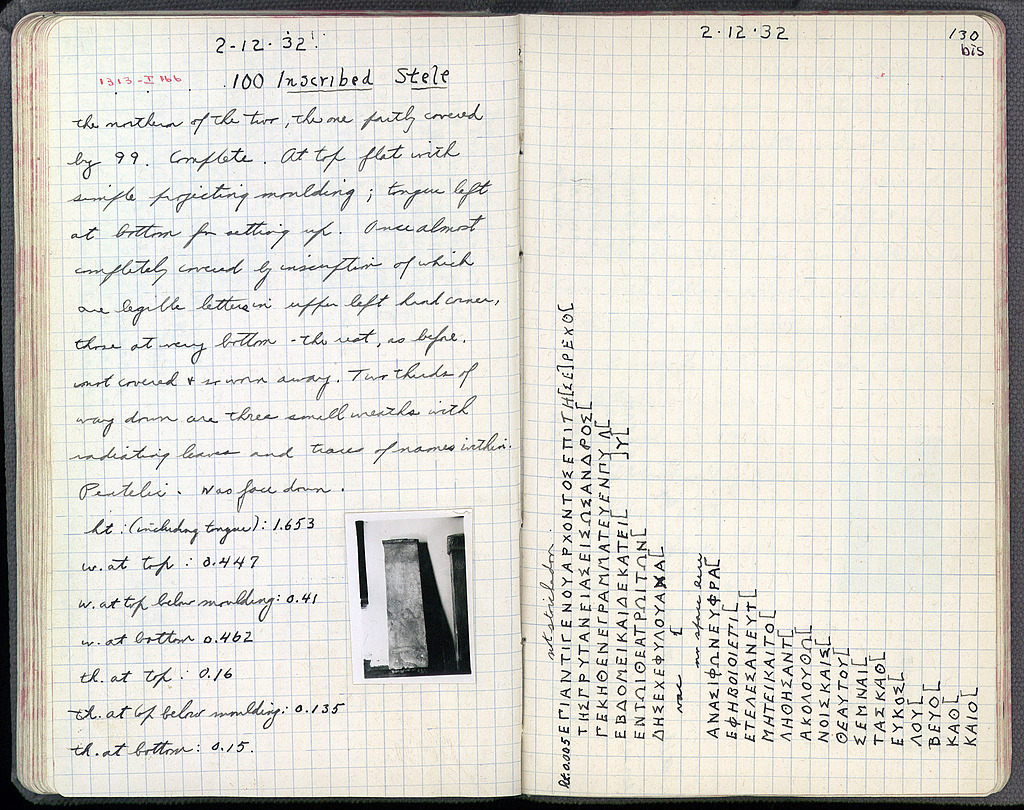 2-12-32
1313-I 166
100 Inscribed Stele
the northern of the two, the one partly covered
by 99. Complete. At top flat with
simple projecting moulding; tongue left
at bottom for setting up. Once almost
completely covered by inscription of which
are legible letters in upper left hand corner,
those at very bottom - the rest, as before,
not covered & so worn away. Two thirds of
way down are three small wreaths with
radiating leaves and traces of names within.
Pentelic. Was face down.
ht: (including tongue): 1.653
w. at top: 0.447
w. at top below moulding: 0.41
w. at bottom 0.462
th. at top: 0.16
th. at top below moulding: 0.135
th. at bottom: 0.15.
2.12.32
130
bis
not stoichedon
lt. 0.005 ΕΠΙΑΝΤΙΓΕΝΟΥΑΡΧΟΝΤΟΣΕΠΙΤΗ[ΣΕ]ΡΕΧΘ[
ΤΗΣΠΡΥΤΑΝΕΙΑΣΕΙΣΩΣΑΝΔΡΟΣ[
ΓΕΚΗΘΕΝΕΓΡΑΜΜΑΤΕΥΕΝΠΥ Λ[
]Υ[
ΕΒΔΟΜΕΙΚΑΙΔΕΚΑΤΕΙ[
ΕΝΤΩΙΘΕΑΤΡΩΙΤΩΝ[
ΔΗΣΕΧΕΦΥΛΟΥΑΧΑ[
vac [ no space here
ΑΝΑΣΙΦΩΝΕΥΦΡΑ[
ΕΦΗΒΟΙΟΙΕΠΙ[
ΕΤΕΛΕΣΑΝΕΥΤ[
ΜΗΤΕΙΚΑΙΤΟ[
ΛΗΘΗΣΑΝΤ[
ΑΚΟΛΟΥΘΩ[
ΝΟΙΣΚΑΙΣ[
ΘΕΑΥΤΟΥ[
ΣΕΜΝΑΙ[
ΤΑΣΙΚΑΘ[
ΕΥΚΟΣ[
ΛΟΥ[
ΒΕΥΟ[
ΚΑΘ[
ΚΑΙΟ[